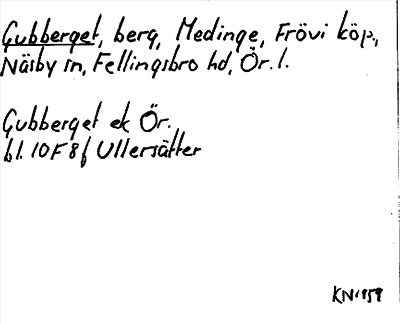 Gubberget, berg, Medinge, Frövi köp.,
Näsby sn, Fellingsbro hd, Ör. l.
Gubberget ek Ör.
bl. 10F 8f Ullersätter
KN 1959